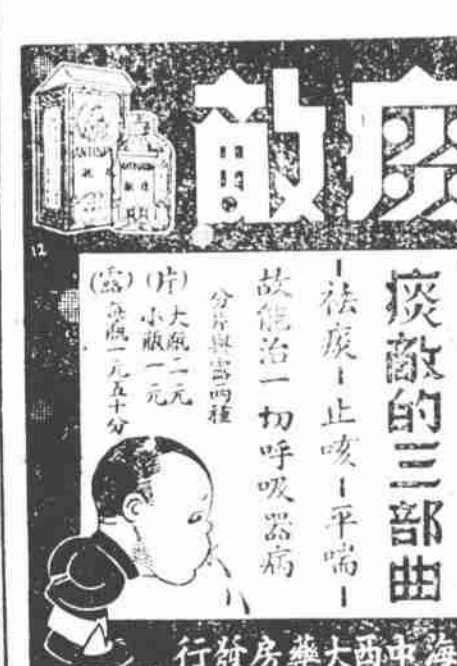 痰敵
ANTISPU
12
痰敵的三部曲
－祛痰－止咳－平喘－
故能治一切呼吸器病
分片與露兩種
(片)大瓶二元
小瓶一元
(露)每瓶一元五十分
海中西大藥房發行